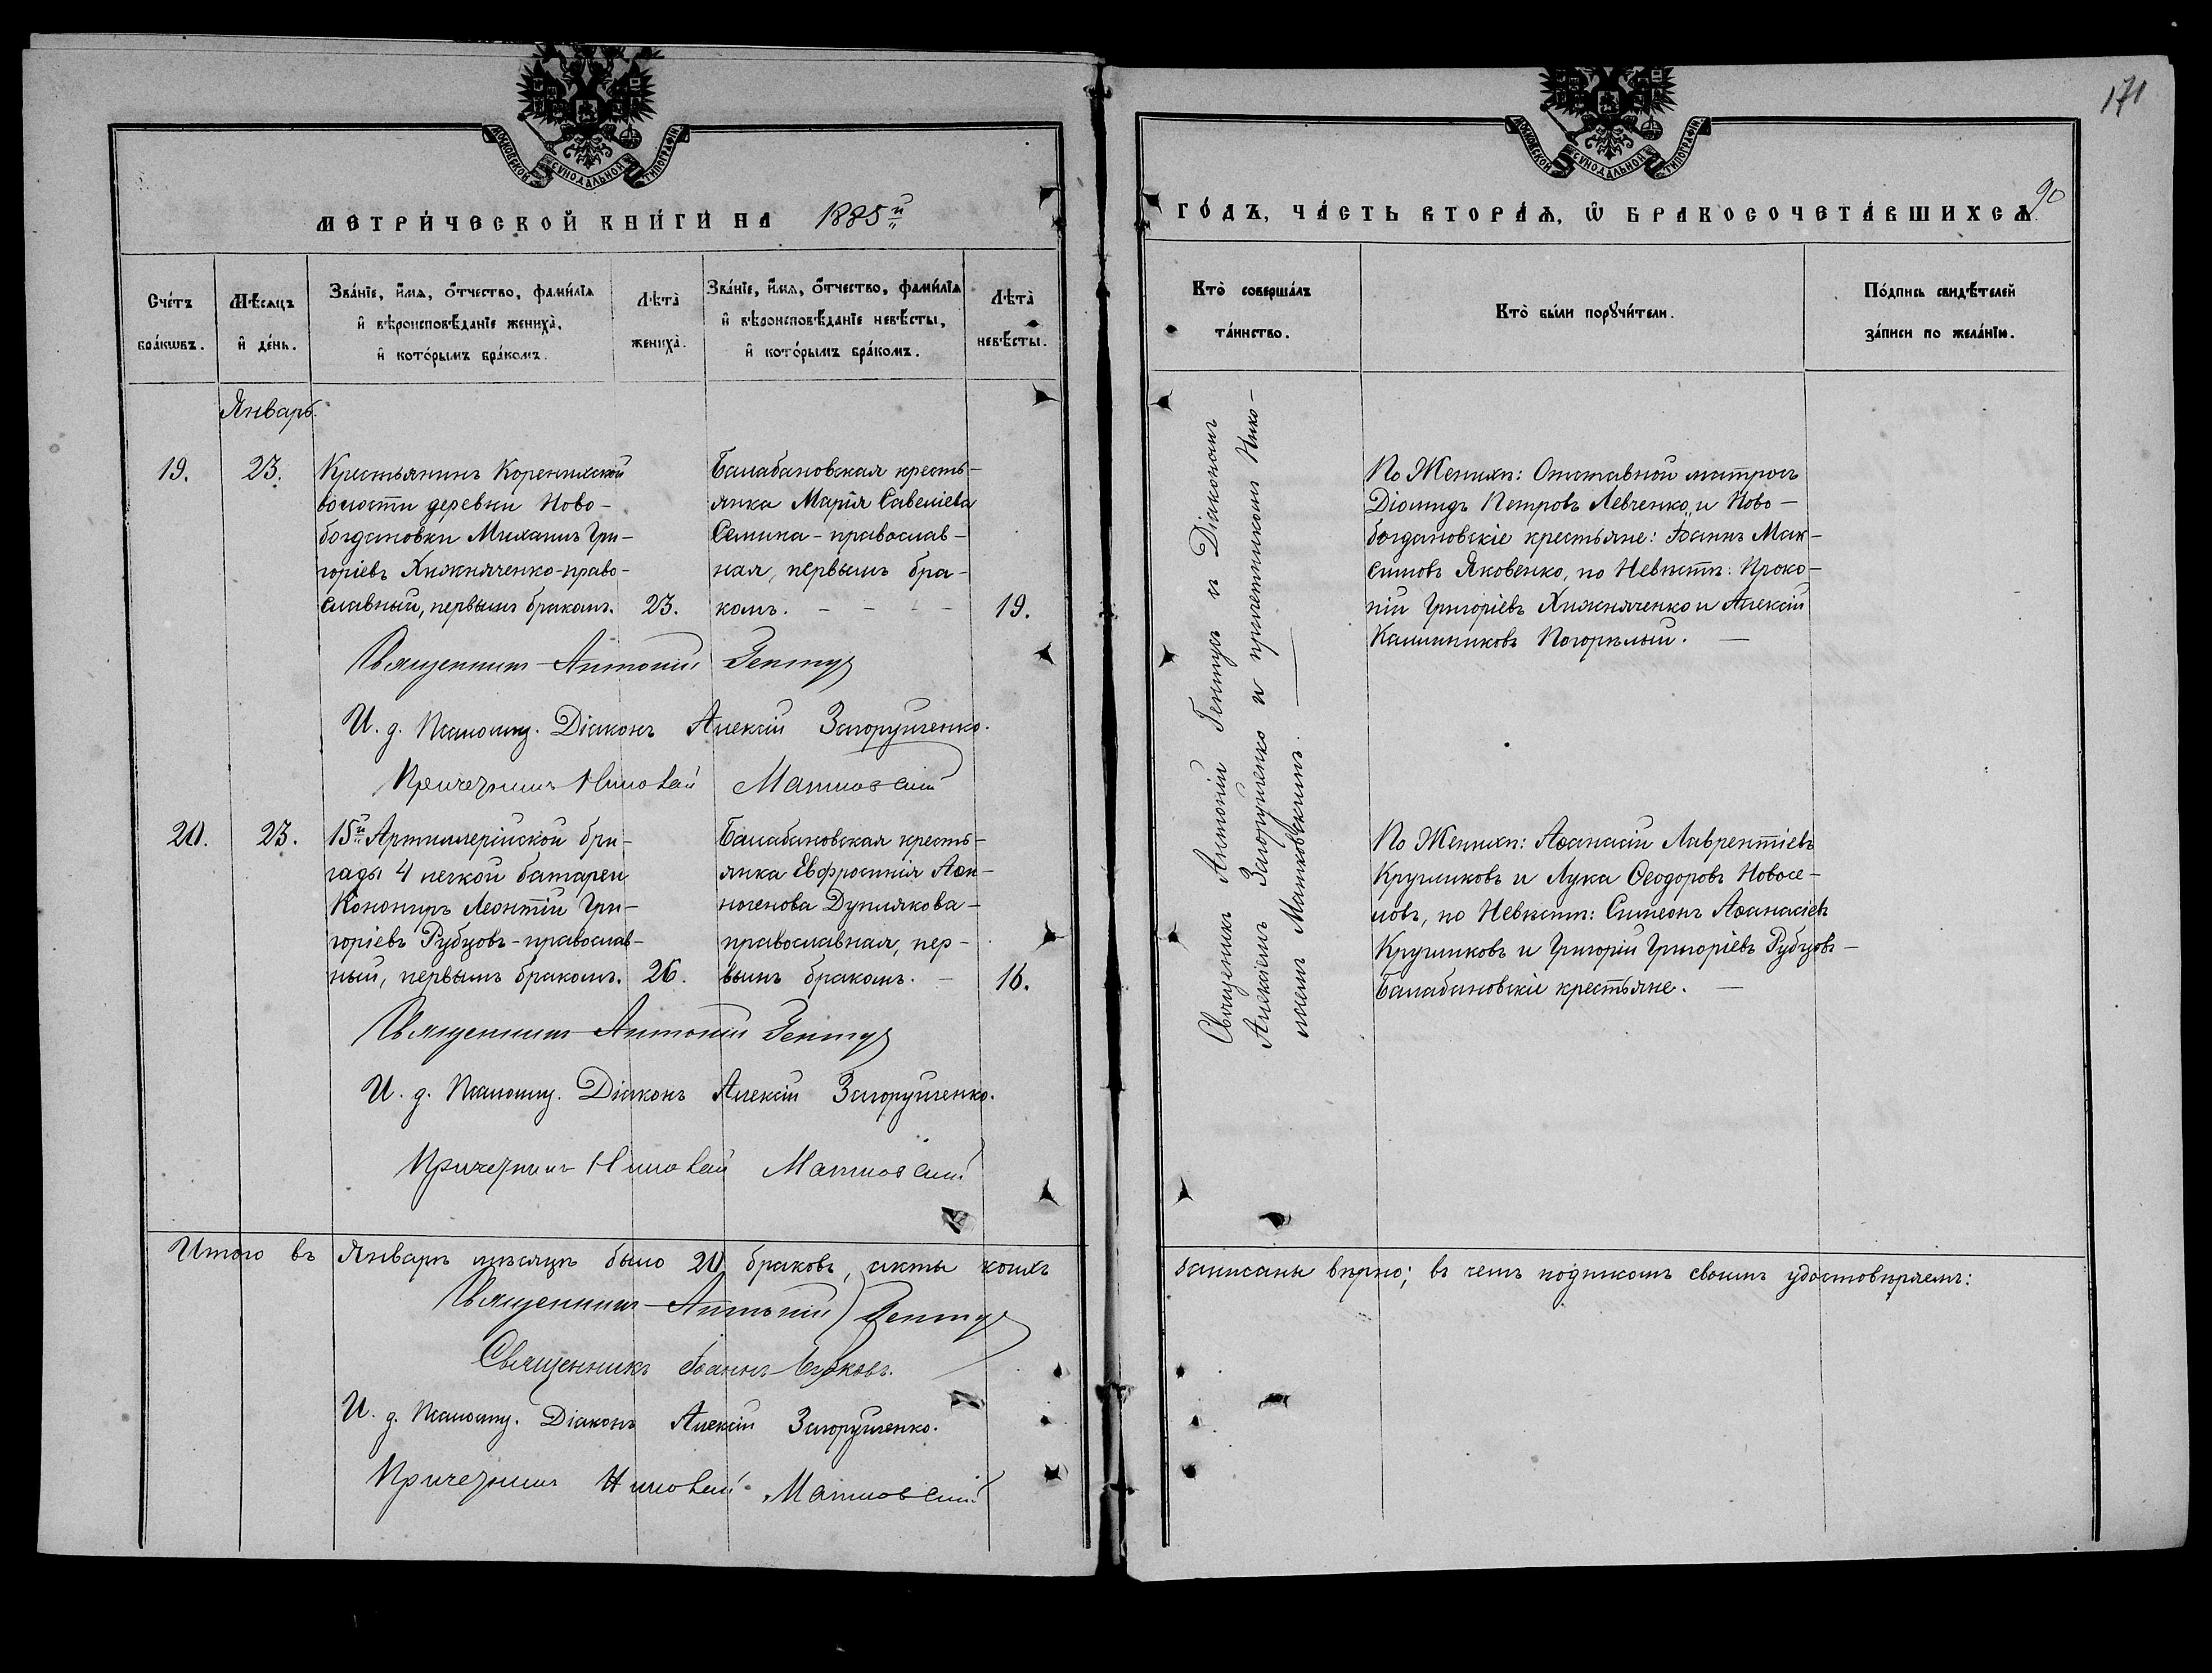 МОСКОВСКОЙ СУНОДАЛЬНОЙ ТИПОГРАФІИ.
МЕТРИ́ЧЕСКОЙ КНИ́ГИ НА 1885й
Сче́тъ бра́кѡвъ.
Мѣ́сяцъ и҆ де́нь.
Зва́нїе, и҆́мѧ, ѻ҆́тчество, фами́лїѧ
и҆ вѣроисповѣ́данїе жениха̀,
и҆ кото́рымъ бра́комъ.
Лѣта̀ жениха̀.
Зва́нїе, и҆́мѧ, ѻ҆́тчество, фами́лїѧ
и҆ вѣроисповѣ́данїе невѣ́сты,
и҆ кото́рымъ бра́комъ.
Лѣта̀ невѣ́сты.
Январь.
19.
23.
Крестьянинъ Коренихской
волости деревни Ново-
богдановки Михаилъ Гри-
горіевъ Хижняченко-право-
славный, первымъ бракомъ.
23.
Балабановская кресть-
янка Марія Савеліева
Семина - православ-
ная, первымъ бра-
комъ. - - - -
19.
Священникъ Антоній Гентуд
И. д. Псаломщ. Діаконъ Алексій Загоруйченко.
Причетникъ Николай Матковскій
20.
23.
15й Артиллерійской бри-
гады 4 легкой батареи
Конониръ Леонтій Гри-
горіевъ Рубцовъ - православ-
ный, первымъ бракомъ.
26.
Балабановская кресть-
янка Евфросинія Аѳи-
ногенова Дуплякова -
православная, пер-
вымъ бракомъ. -
16.
Священникъ Антоній Гентуд
И. д. Псаломщ. Діаконъ Алексій Загоруйченко.
Причетникъ Николай Матковскій
Итого въ Январѣ мѣсяцѣ было 20 браковъ, акты коихъ
Священникъ Антоній Гентуд
Священникъ Іоаннъ
И. д. Псаломщ. Діаконъ Алексій Загоруйченко.
Причетникъ Николай Матковскій
171
90
МОСКОВСКОЙ СУНОДАЛЬНОЙ ТИПОГРАФІИ.
ГО́ДЪ, ЧА́СТЬ ВТОРА́Ѧ, Ѡ҆ БРАКОСОЧЕТА́ВШИХСѦ.
Кто̀ соверша́лъ
та́инство.
Кто̀ бы́ли порꙋчи́тели.
По́дпись свидѣ́телей
за́писи по жела́нїю.
Священникъ Антоній Гентуд съ Діакономъ
Алексіемъ Загоруйченко и причетникомъ Нико-
лаемъ Матковскимъ. —
По Женихѣ: Отставной матросъ
Діомидъ Петровъ Левченко и Ново-
богдановскіе крестьяне: Іоаннъ Мак-
симовъ Яковенко, по Невѣстѣ: Проко-
пій Григоріевъ Хижняченко и Алексій
Калинниковъ Погорѣлый. —
По Женихѣ: Аѳанасій Лаврентіевъ
Кругликовъ и Лука Ѳеодоровъ Новосе-
ловъ, по Невѣстѣ: Симеонъ Аѳанасіевъ
Кругликовъ и Григорій Григоріевъ Рубцовъ -
Балабановскіе крестьяне. —
записаны вѣрно; въ чемъ подписомъ своимъ удостовѣряемъ: